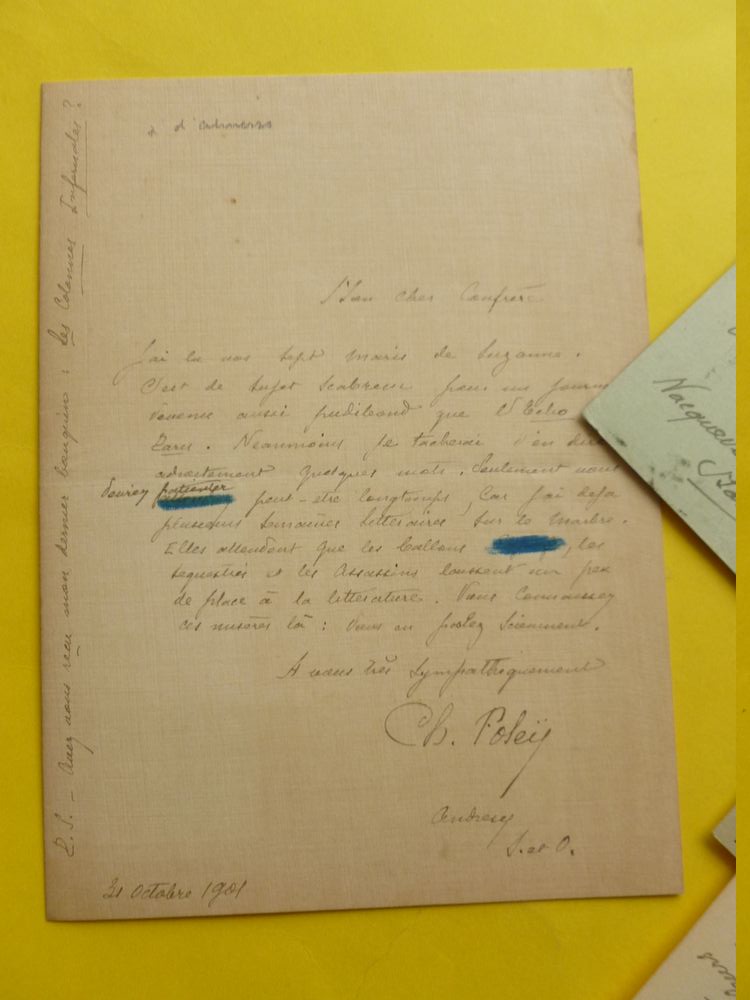 d'
Mon cher Confrère
J'ai lu vos Sept Maris de Suzanne.
C'est de sujet scabreux pour un journ
devenu aussi pudibond que l'Echo
Paris. Néanmoins je tacherai d'en dire
adroitement quelques mots. Seulement vous
devrez patienter peut-être longtemps, car j'ai déjà
plusieurs Semaines littéraires sur le marbre.
Elles attendent que les ballons, les
sequestrés et les Assassins laissent un peu
de place à la littérature. Vous connaissez
ces misères là : vous en
A vous très sympathiquement
Ch. Foleÿ
Andresy
S. et O.
31 Octobre 1901
P.S. - Avez vous reçu mon dernier bouquin : les Colonnes Infernales ?